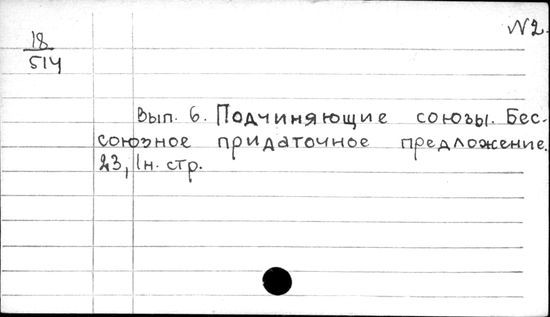 N2.
18
514
Вып. 6. Подчиняющие союзы. Бес-
союзное придаточное предложение.
23, 1н. стр.